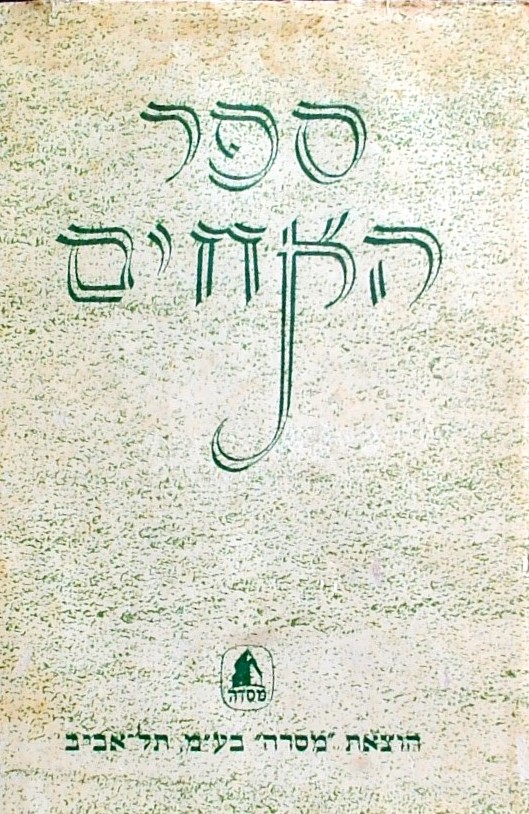 ספר
האחים
מסדה
הוצאת "מסדה" בע"מ, תל־אביב